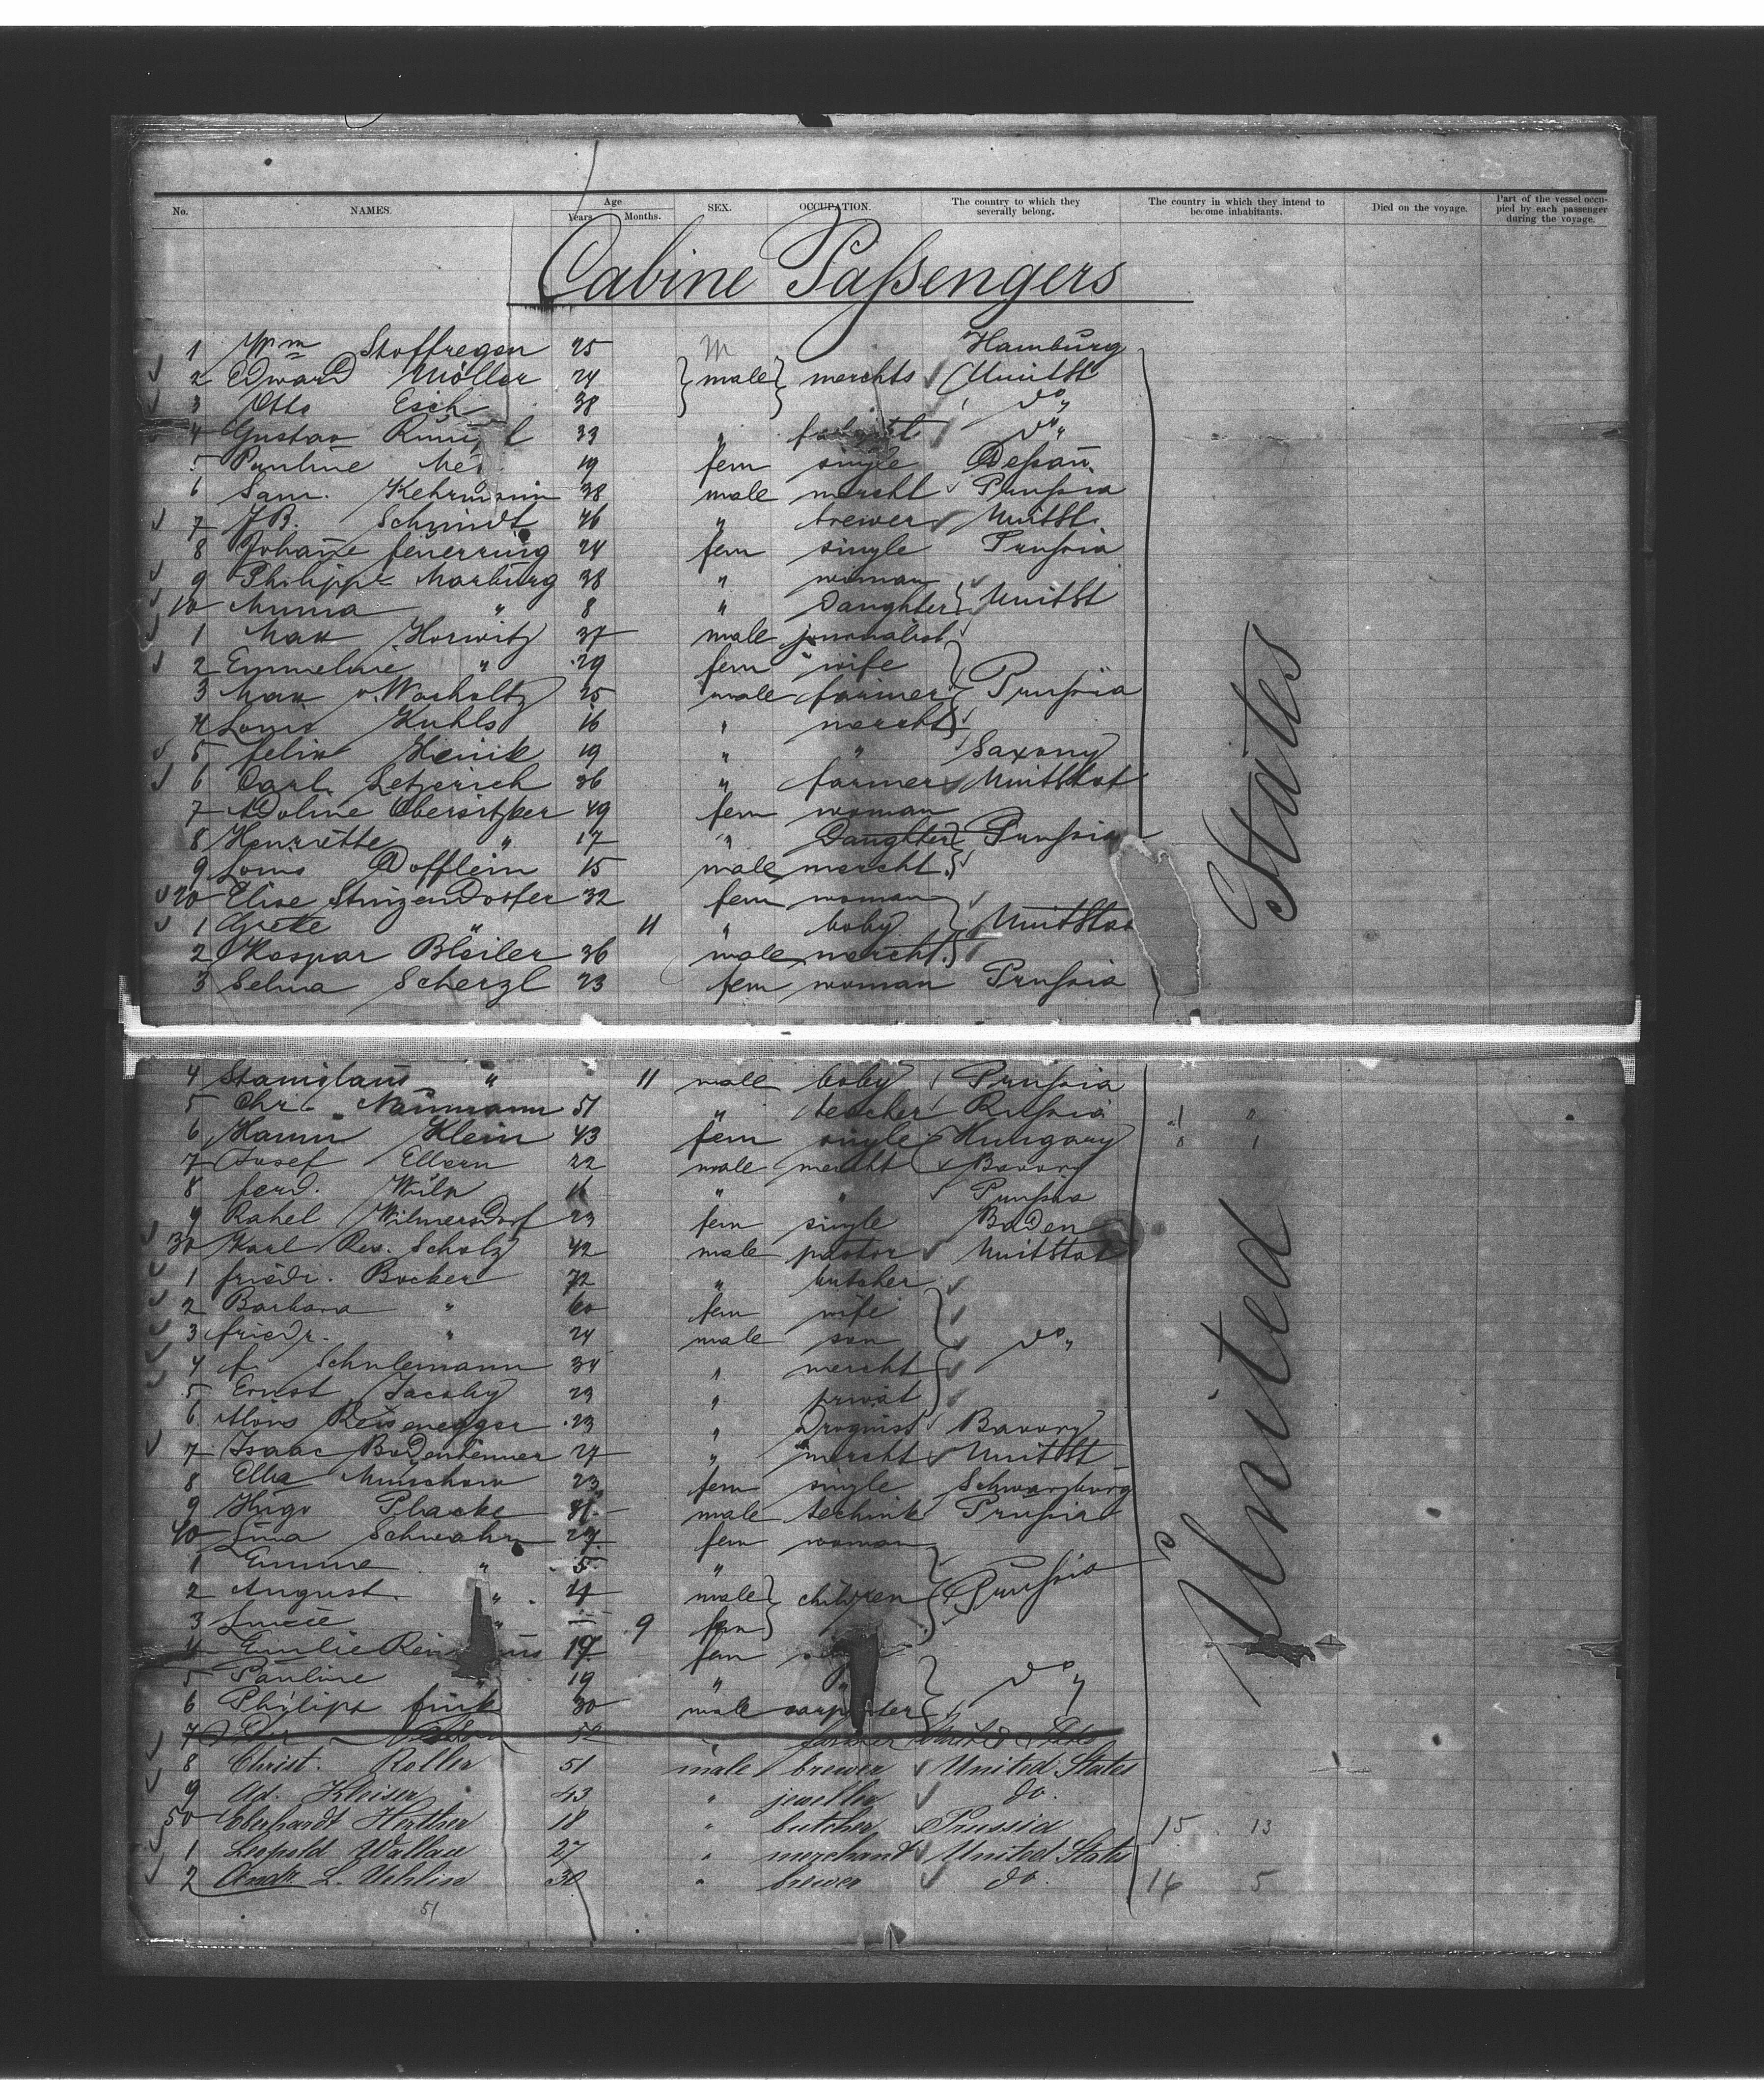 No. NAMES. Age Years Months. SEX. OCCUPATION. The country to which they severally belong. The country in which they intend to become inhabitants. Died on the voyage. Part of the vessel occupied by each passenger during the voyage.
Cabine Paßsengers
1 Wm Stoffregen 25 M Hamburg
2 Edward Möller 24 male merchts UnitSt
3 Otto Esch 38 do "
4 Gustav 33 " do "
5 Pauline 19 fem single Deßau
6 Sam. Kehrmann 38 male mercht Prußsia
7 J.B. Schmidt 46 " brewer UnitSt.
8 Johañe Feuerring 24 fem single Prußsia
9 Philippe Marburg 38 " woman
10 Minna " 8 " Daughter UnitSt
1 Max Horwitz 37 male journalist
2 Emmeline " 29 fem wife
3 Max v. Washoltz 25 male farmer Prußsia
4 Louis Kuhls 16 " mercht
5 Felix Heink 19 " " Saxony
6 Carl Letzerich 36 " farmer UnitStat
7 Adoline Obersitzker 49 fem woman
8 Henriette " 17 " Daughter Prußsia
9 Louis Dofflein 15 male mercht.
20 Elise Stinzendorfer 32 fem woman
1 Grete " 11 " baby UnitStat
2 Kaspar Bleiler 36 male mercht.
3 Selma Scherzl 23 fem woman Prußsia
4 Stanislaus " 11 male baby Prußsia
5 Chr. Naumann 51 " teacher Rußsia 1 0
6 Hanni Klein 43 fem single Hungary 0 1
7 Josef Ellern 22 male mercht Bavary
8 Ferd. Wilp 16 " " Prußsia
9 Rahel Wilmersdorf 23 fem single Baden
30 Karl Rev. Scholz 42 male pastor UnitStat
1 Friedr. Bocker 72 " butcher
2 Barbara " 60 fem wife
3 Friedr. " 24 male son do "
4 F. Schulemann 34 " mercht
5 Ernst Jacoby 23 " privat
6 Alois Reisenegger 23 " Droguist Bavary
7 Isaac Bodenheimer 27 " mercht UnitSt
8 Ella Munchow 23 fem single Schwarzburg
9 Hugo Placke 31 male technik Prußsia
40 Lina Schwahn 27 fem woman
1 Emma " 5 "
2 August " 4 male children Prußsia
3 Lucie " 9 fem
4 Emilie 19 fem
5 Pauline 19 " do "
6 Philipp Fink 30 male carpenter
7 52 " farmer United States
8 Christ. Roller 51 male brewer United States
9 Ad. Kleiser 43 " jeweller do.
50 Eberhardt Herther 18 " butcher Prussia 15 13
1 Leopold Wallau 27 " merchand United States
2 Andr. L. Uehlin 30 " brewer do. 16 5
51
United States